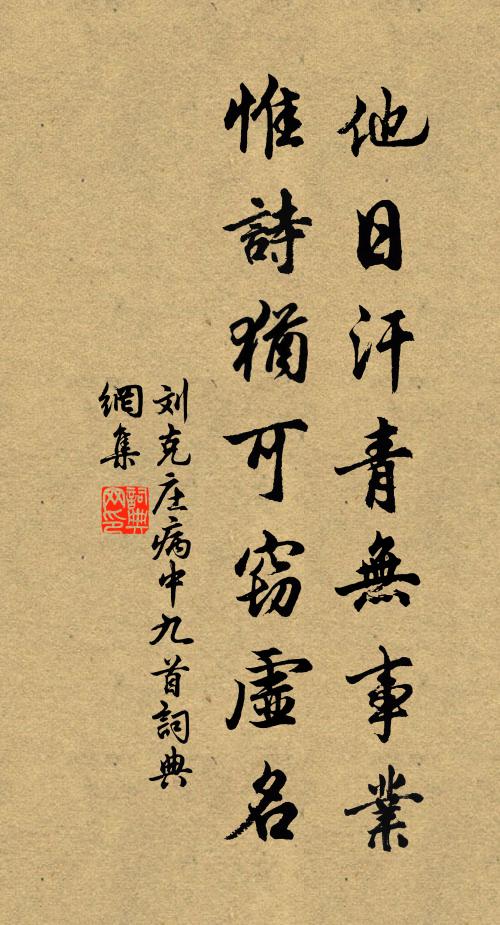 他日汗青無事業
惟詩猶可窃虛名
刘克庄病中九首詞典
網集
詞典网印